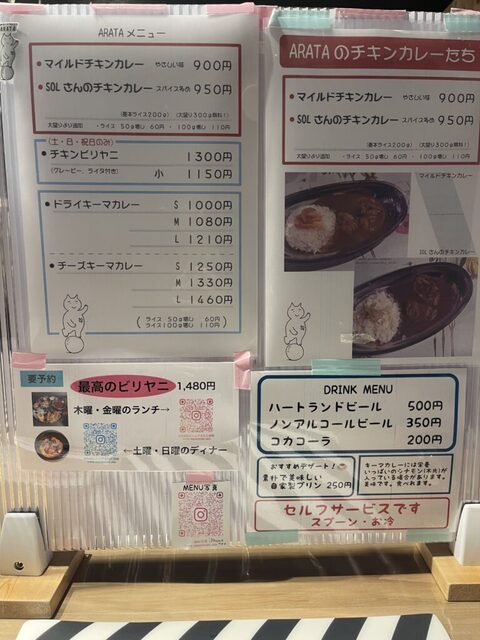 ARATA メニュー
・マイルドチキンカレー やさしい味 900円
・SOLさんのチキンカレー スパイス多め 950円
(基本ライス200g)(大盛り300g無料!)
大盛りより追加 ・ライス 50g増し 60円 ・100g増し 110円
(土・日・祝日のみ)
・チキンビリヤニ 1300円
(グレービー、ライタ付き) 小 1150円
・ドライキーマカレー S 1000円
M 1080円
L 1210円
・チーズキーマカレー S 1250円
M 1330円
L 1460円
(ライス 50g増し 60円
ライス100g増し 110円)
ARATAのチキンカレーたち
・マイルドチキンカレー やさしい味 900円
・SOLさんのチキンカレー スパイス多め 950円
(基本ライス200g)(大盛り300g無料!)
大盛りより追加 ・ライス 50g増し 60円 ・100g増し 110円
マイルドチキンカレー
SOLさんのチキンカレー
要予約
最高のビリヤニ 1,480円
木曜・金曜のランチ→
←土曜・日曜のディナー
MENU写真
DRINK MENU
ハートランドビール 500円
ノンアルコールビール 350円
コカコーラ 200円
おすすめデザート!
素朴で美味しい
自家製プリン 250円
キーマカレーには栄養
いっぱいのシナモン(木片)が
入っている場合があります。
美味です。食べれます。
セルフサービスです
スプーン・お冷